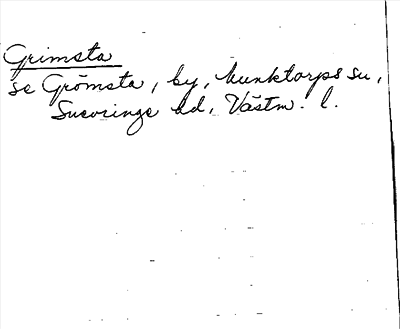 Grimsta
se Grömsta, by, Munktorps sn,
Snevringe hd, Västm. l.